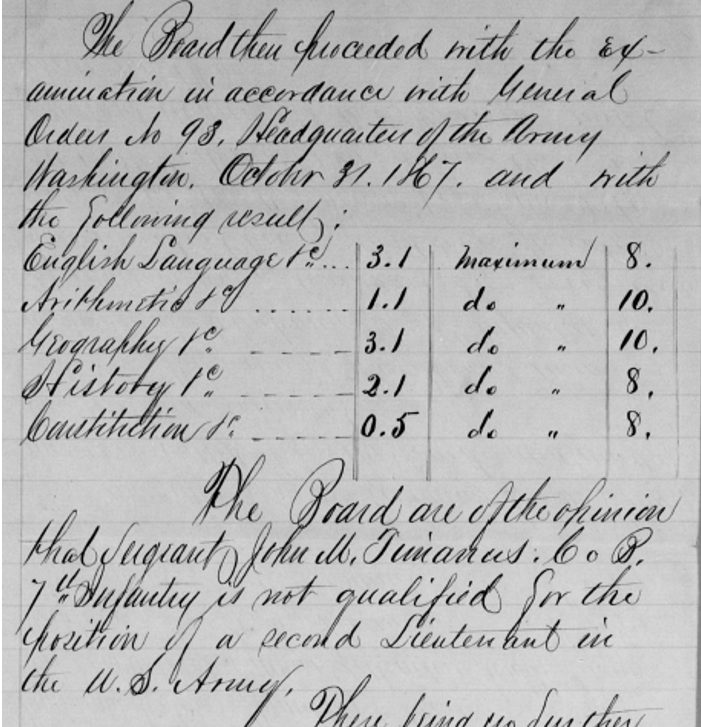 The Board then proceeded with the Ex-
amination in accordance with General
Orders No 93, Headquarters of the Army
Washington, October 31. 1867. and with
the following result:
English Language &c... 3.1 maximum 8.
Arithmetic &c ...... 1.1 do " 10.
Geography &c. ----- 3.1 do " 10.
History &c. ----- 2.1 do " 8.
Constitution &c. ----- 0.5 do " 8.
The Board are of the opinion
that Sergeant John M. Timanus. Co B.
7th Infantry is not qualified for the
position of a second Lieutenant in
the U.S. Army.
There being no further